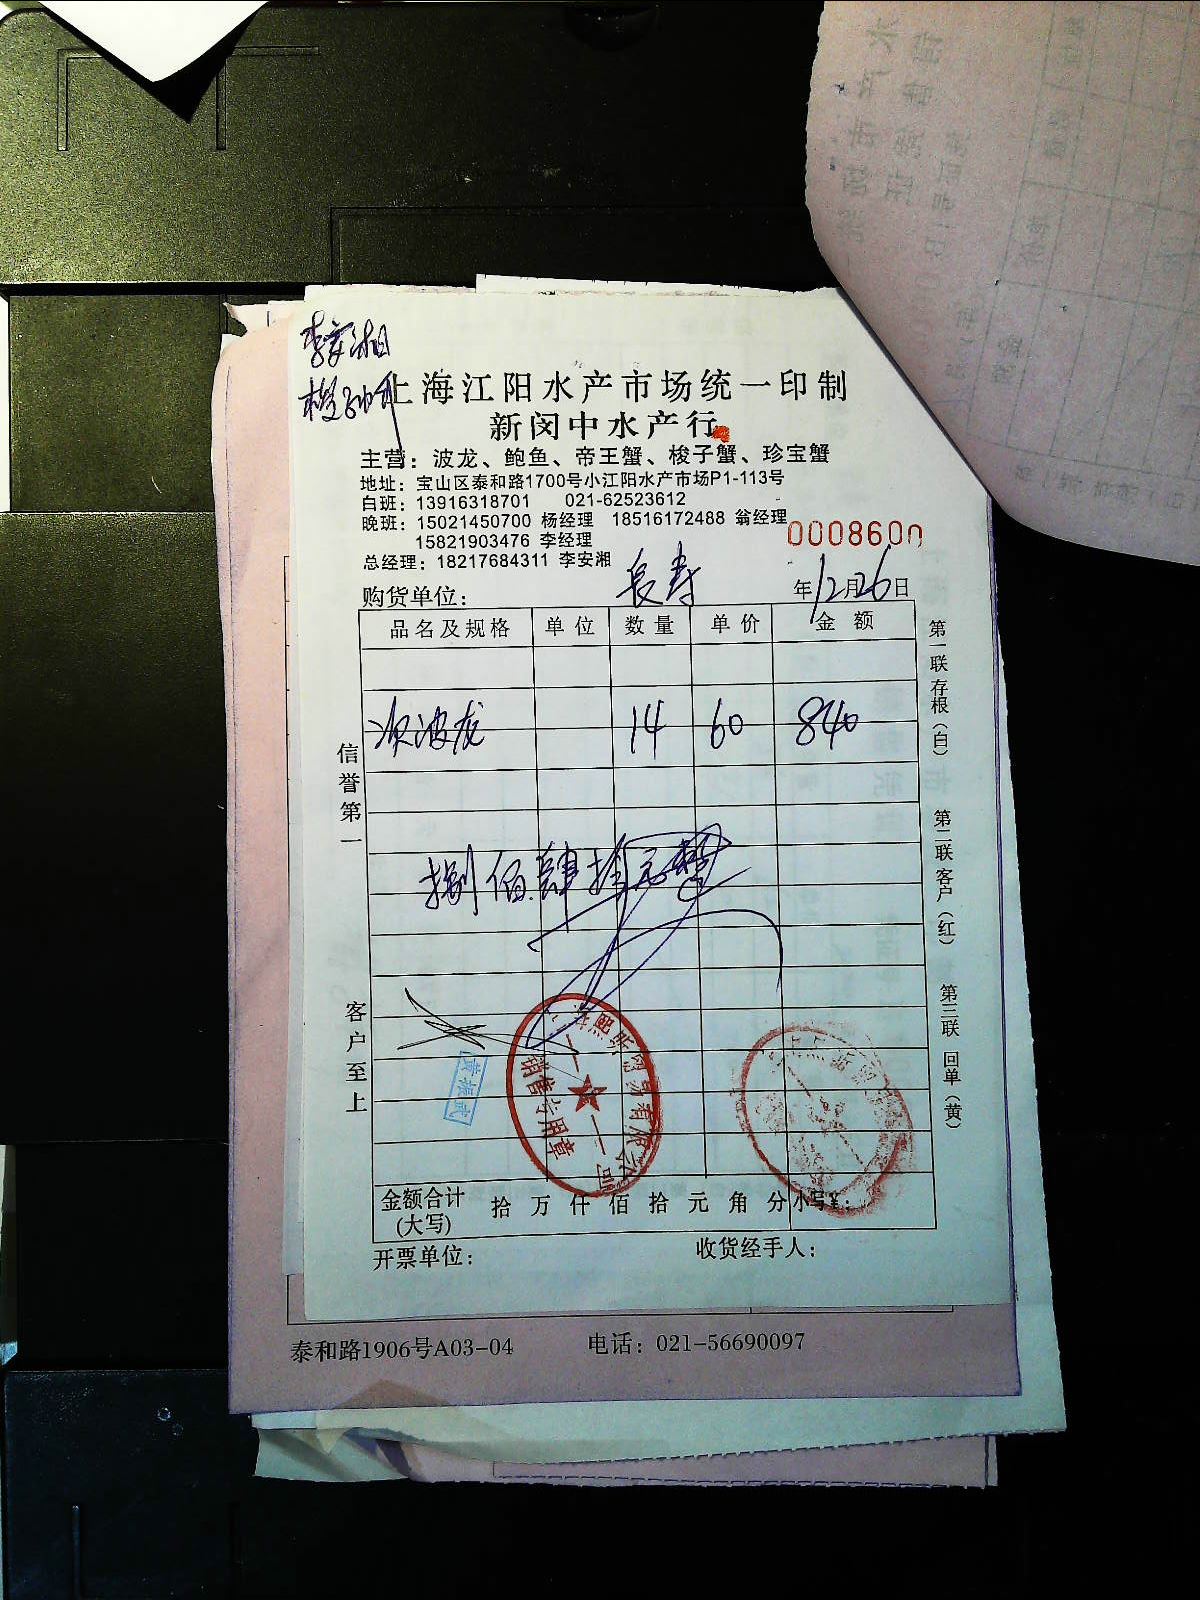 李安湘
上海江阳水产市场统一印制
新闵中水产行
主营：波龙、鲍鱼、帝王蟹、梭子蟹、珍宝蟹
地址：宝山区泰和路1700号小江阳水产市场P1-113号
白班：13916318701 021-62523612
晚班：15021450700 杨经理 18516172488 翁经理
15821903476 李经理
0008600
总经理：18217684311 李安湘
购货单位： 长寿 年12月26日
品名及规格 单位 数量 单价 金额
次波龙 14 60 840
捌佰肆拾元整
信誉第一
客户至上
第一联 存根（白）
第二联 客户（红）
第三联 回单（黄）
黄振武
销售专用章
金额合计(大写) 拾 万 仟 佰 拾 元 角 分 小写¥：
开票单位： 收货经手人：
泰和路1906号A03-04 电话：021-56690097